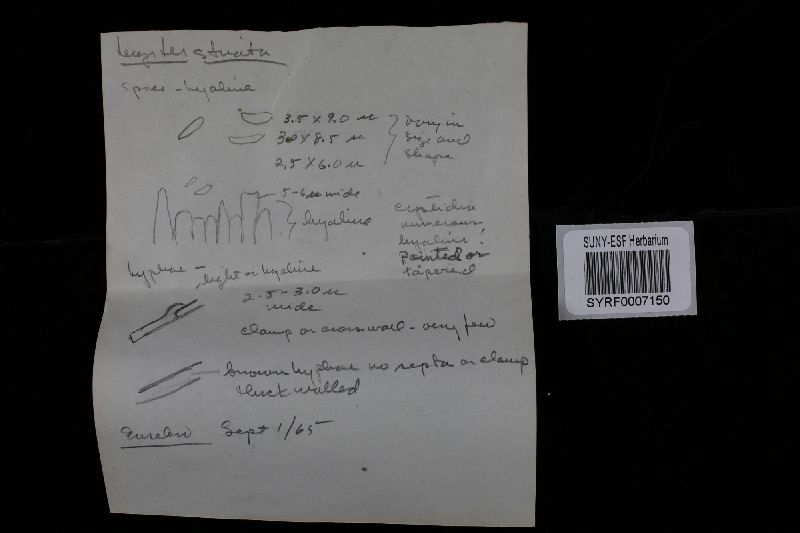 Lenzites striata
Spores - hyaline
3.5 X 9.0 u
3.0 X 8.5 u
2.5 X 6.0 u
vary in
size and
shape
5-6 u wide
hyaline
cystidia
numerous
hyaline!
pointed or
tapered
hyphae -
light or hyaline
2.5 - 3.0 u
wide
clamp or cross wall - very few
brown hyphae no septa or clamp
thick walled
Sept 1/65
SUNY-ESF Herbarium
SYRF0007150